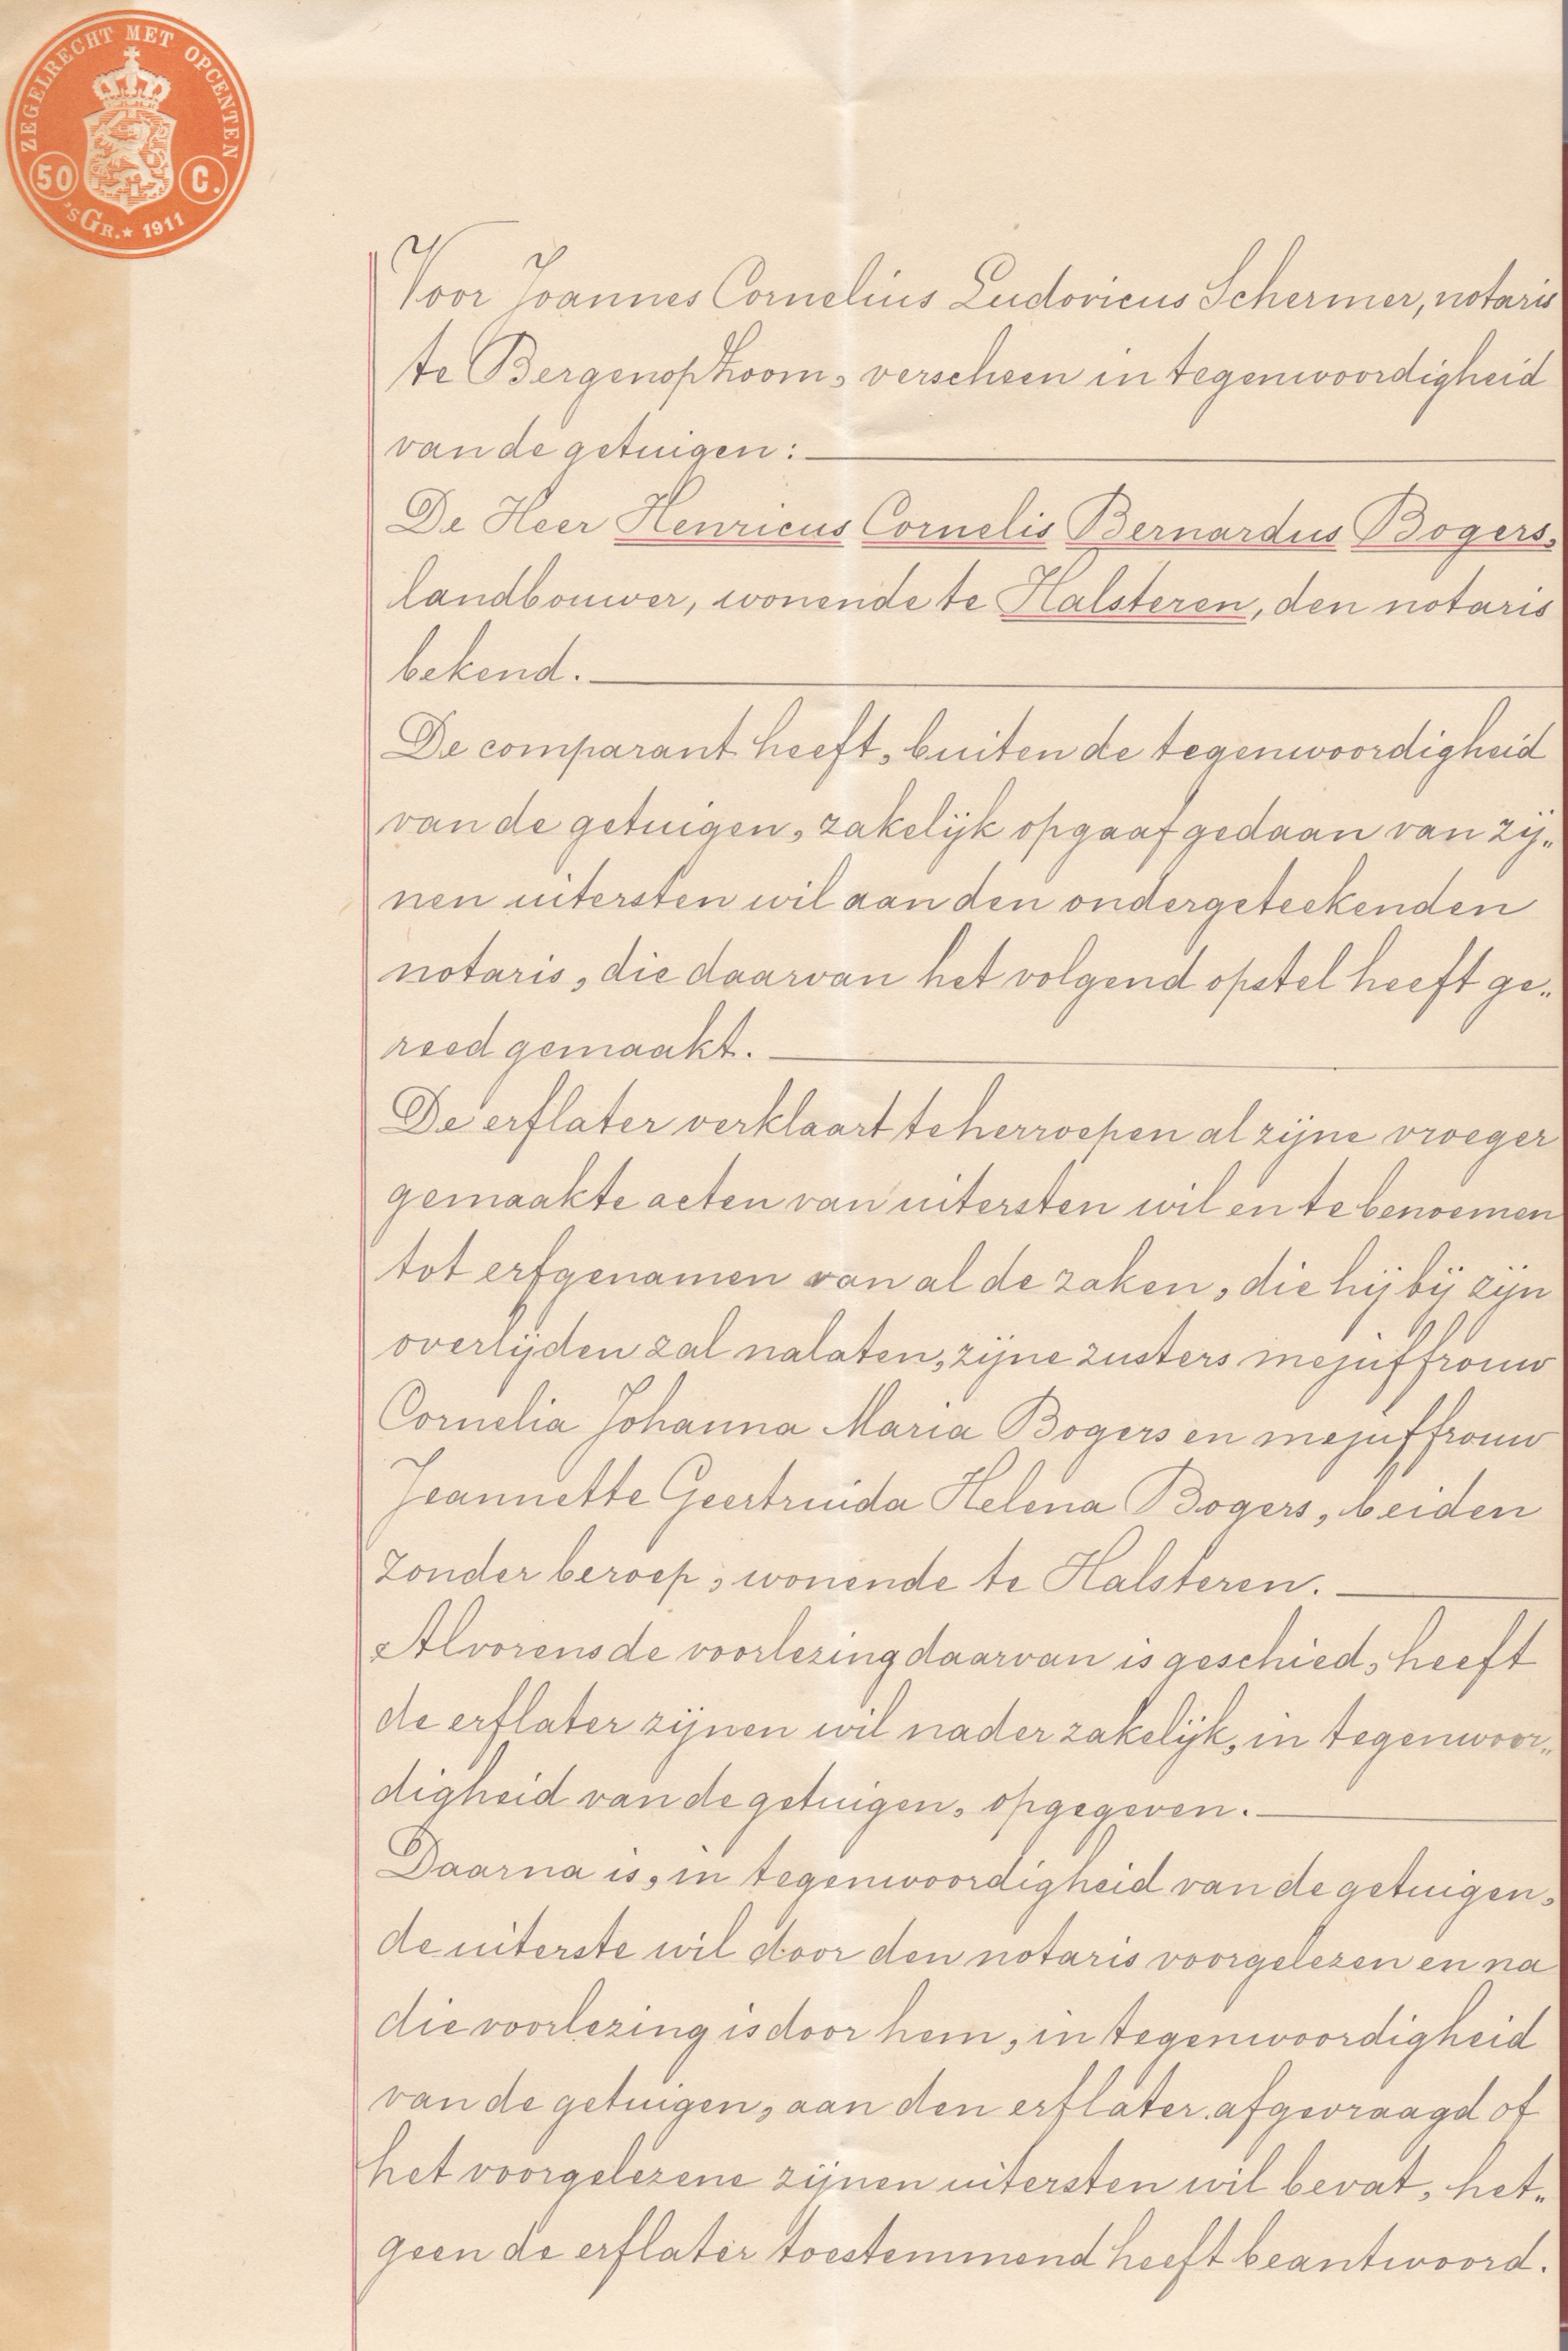 ZEGELRECHT MET OPCENTEN
50 C.
'sGR.★ 1911
Voor Joannes Cornelius Ludovicus Schermer, notaris
te Bergenopzoom, verscheen in tegenwoordigheid
van de getuigen:
De Heer Henricus Cornelis Bernardus Bogers,
landbouwer, wonende te Halsteren, den notaris
bekend.
De comparant heeft, buiten de tegenwoordigheid
van de getuigen, zakelijk opgaaf gedaan van zij„
nen uitersten wil aan den ondergeteekenden
notaris, die daarvan het volgend opstel heeft ge„
reed gemaakt.
De erflater verklaart te herroepen al zijne vroeger
gemaakte acten van uitersten wil en te benoemen
tot erfgenamen van al de zaken, die hij bij zijn
overlijden zal nalaten, zijne zusters mejuffrouw
Cornelia Johanna Maria Bogers en mejuffrouw
Jeannette Geertruida Helena Bogers, beiden
zonder beroep, wonende te Halsteren.
Alvorens de voorlezing daarvan is geschied, heeft
de erflater zijnen wil nader zakelijk, in tegenwoor„
digheid van de getuigen, opgegeven.
Daarna is, in tegenwoordigheid van de getuigen,
de uiterste wil door den notaris voorgelezen en na
die voorlezing is door hem, in tegenwoordigheid
van de getuigen, aan den erflater afgevraagd of
het voorgelezene zijnen uitersten wil bevat, het„
geen de erflater toestemmend heeft beantwoord.